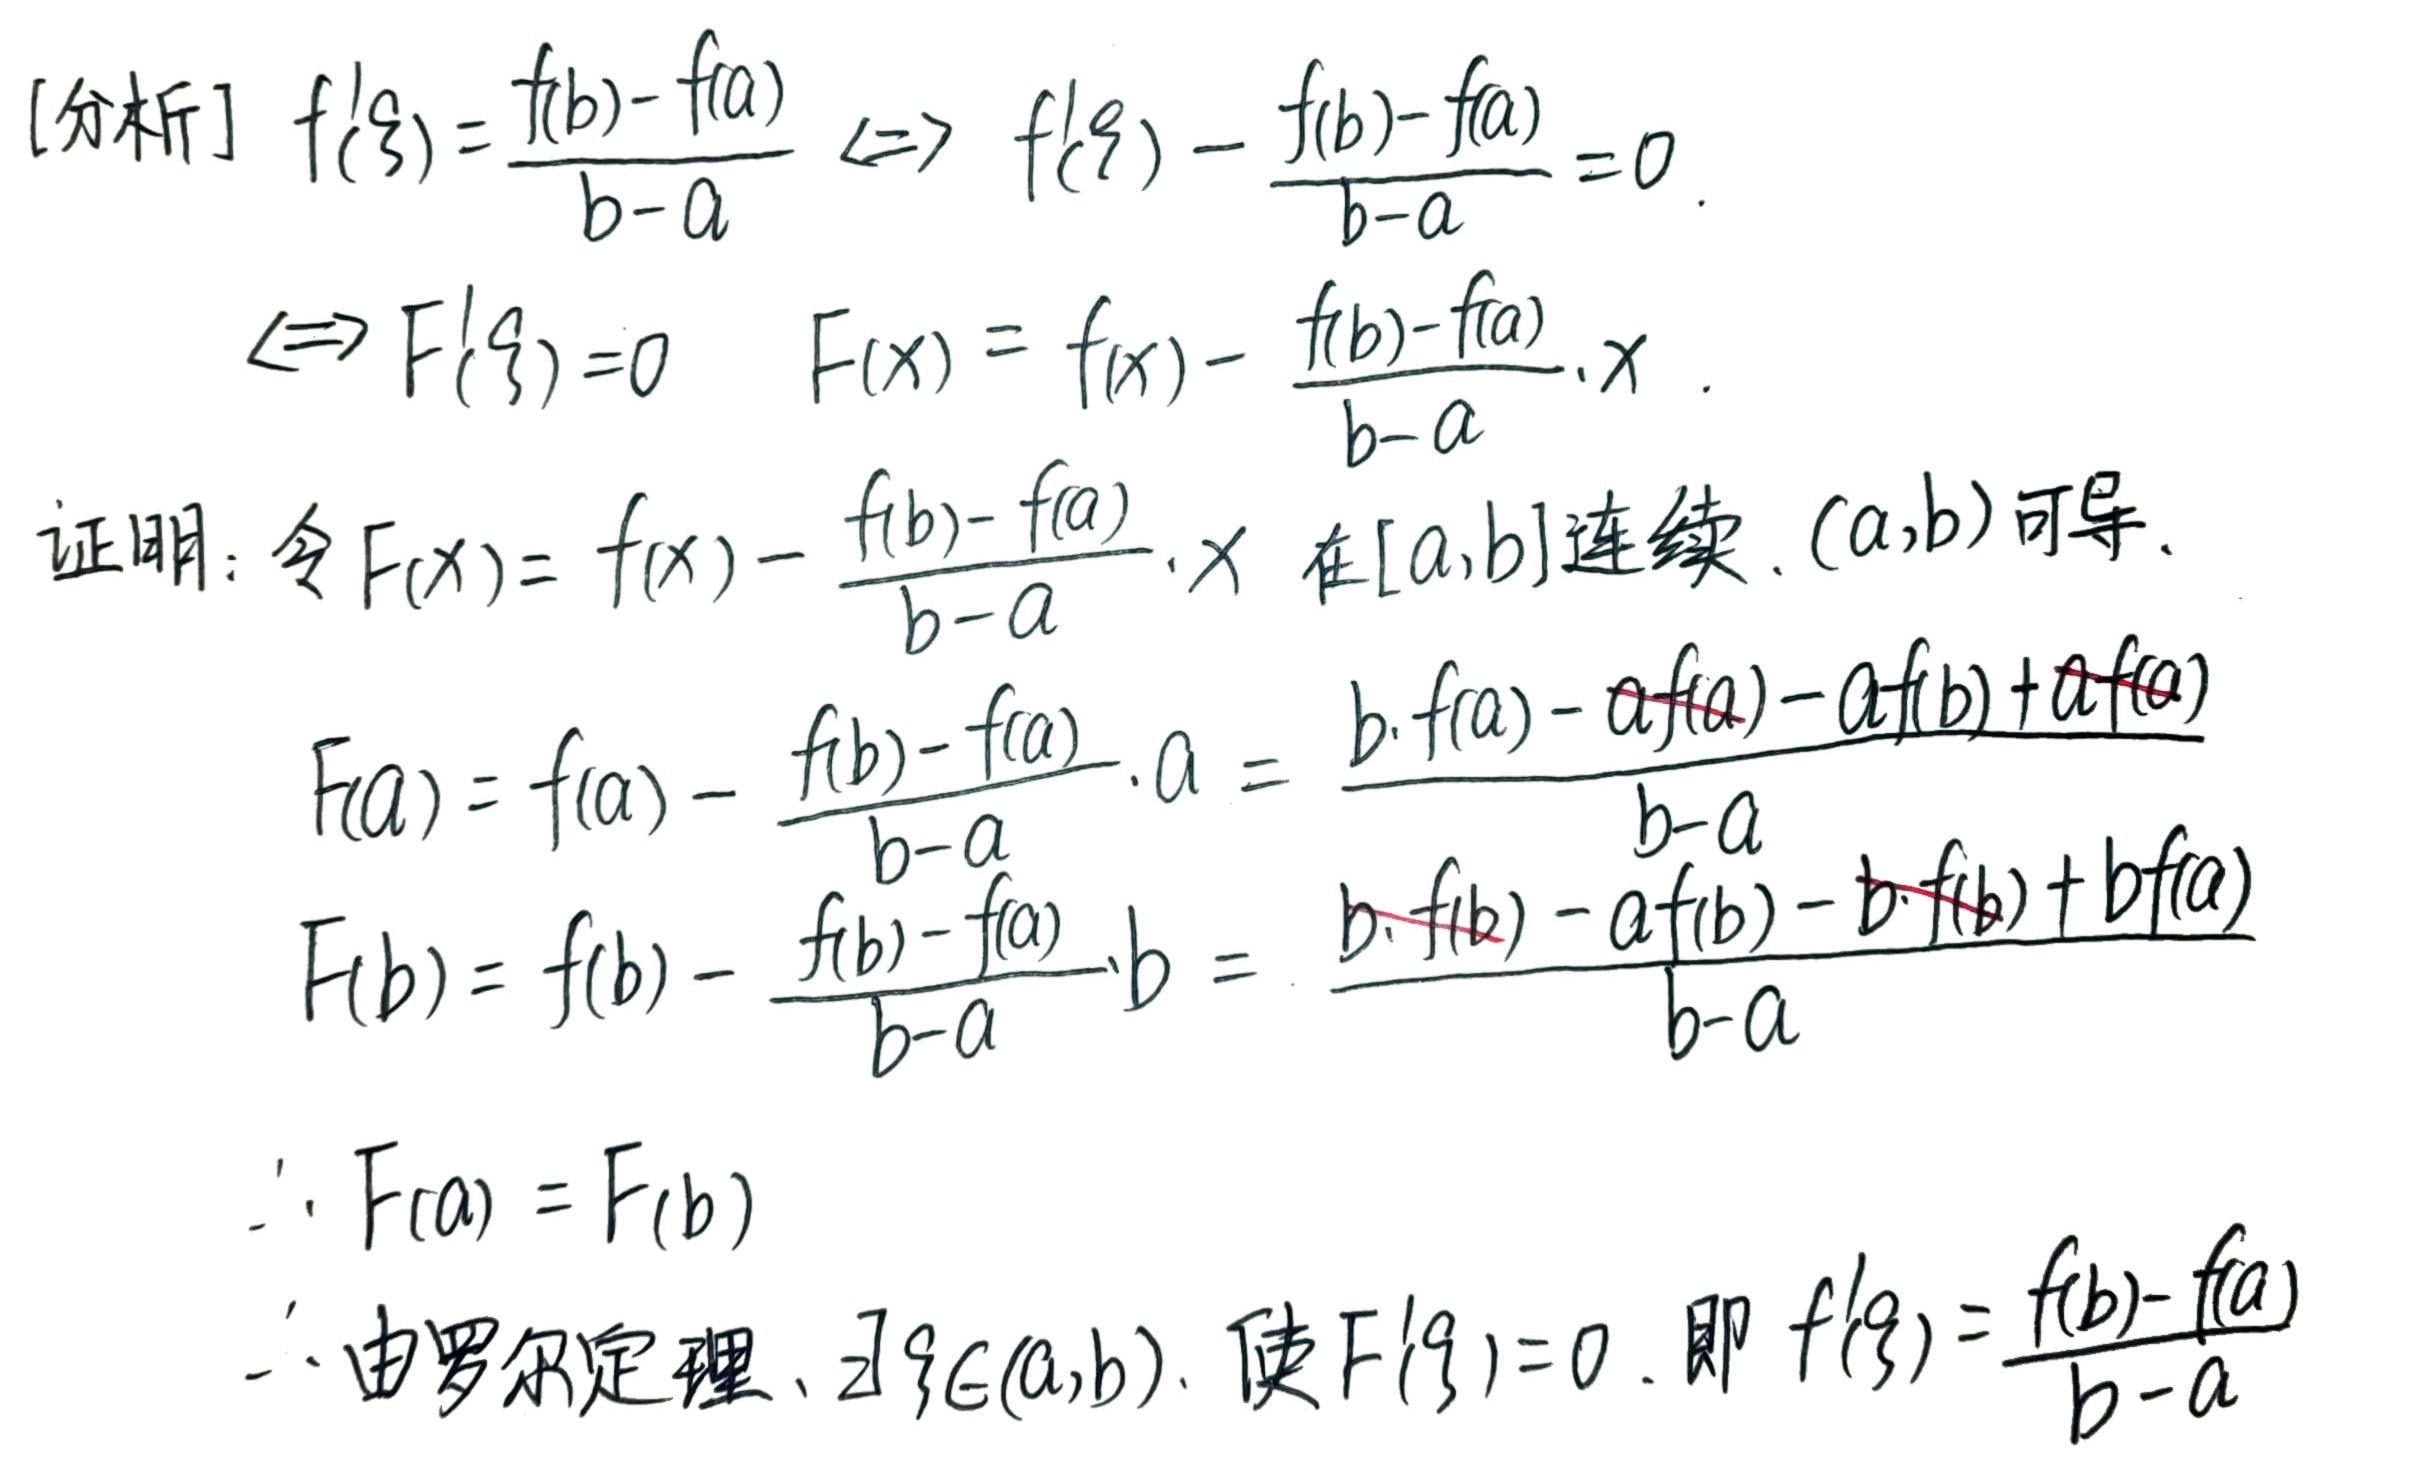 [分析] f'(ξ) = \frac{f(b)-f(a)}{b-a} <=> f'(ξ) - \frac{f(b)-f(a)}{b-a} = 0.
<=> F'(ξ) = 0 F(x) = f(x) - \frac{f(b)-f(a)}{b-a}·x.
证明: 令 F(x) = f(x) - \frac{f(b)-f(a)}{b-a}·x 在[a,b]连续、(a,b)可导、
F(a) = f(a) - \frac{f(b)-f(a)}{b-a}·a = \frac{b·f(a) - af(a) - af(b) + af(a)}{b-a}
F(b) = f(b) - \frac{f(b)-f(a)}{b-a}·b = \frac{b·f(b) - af(b) - b·f(b) + bf(a)}{b-a}
∴ F(a) = F(b)
∴ 由罗尔定理、∃ξ∈(a,b)、使F'(ξ)=0. 即 f'(ξ) = \frac{f(b)-f(a)}{b-a}